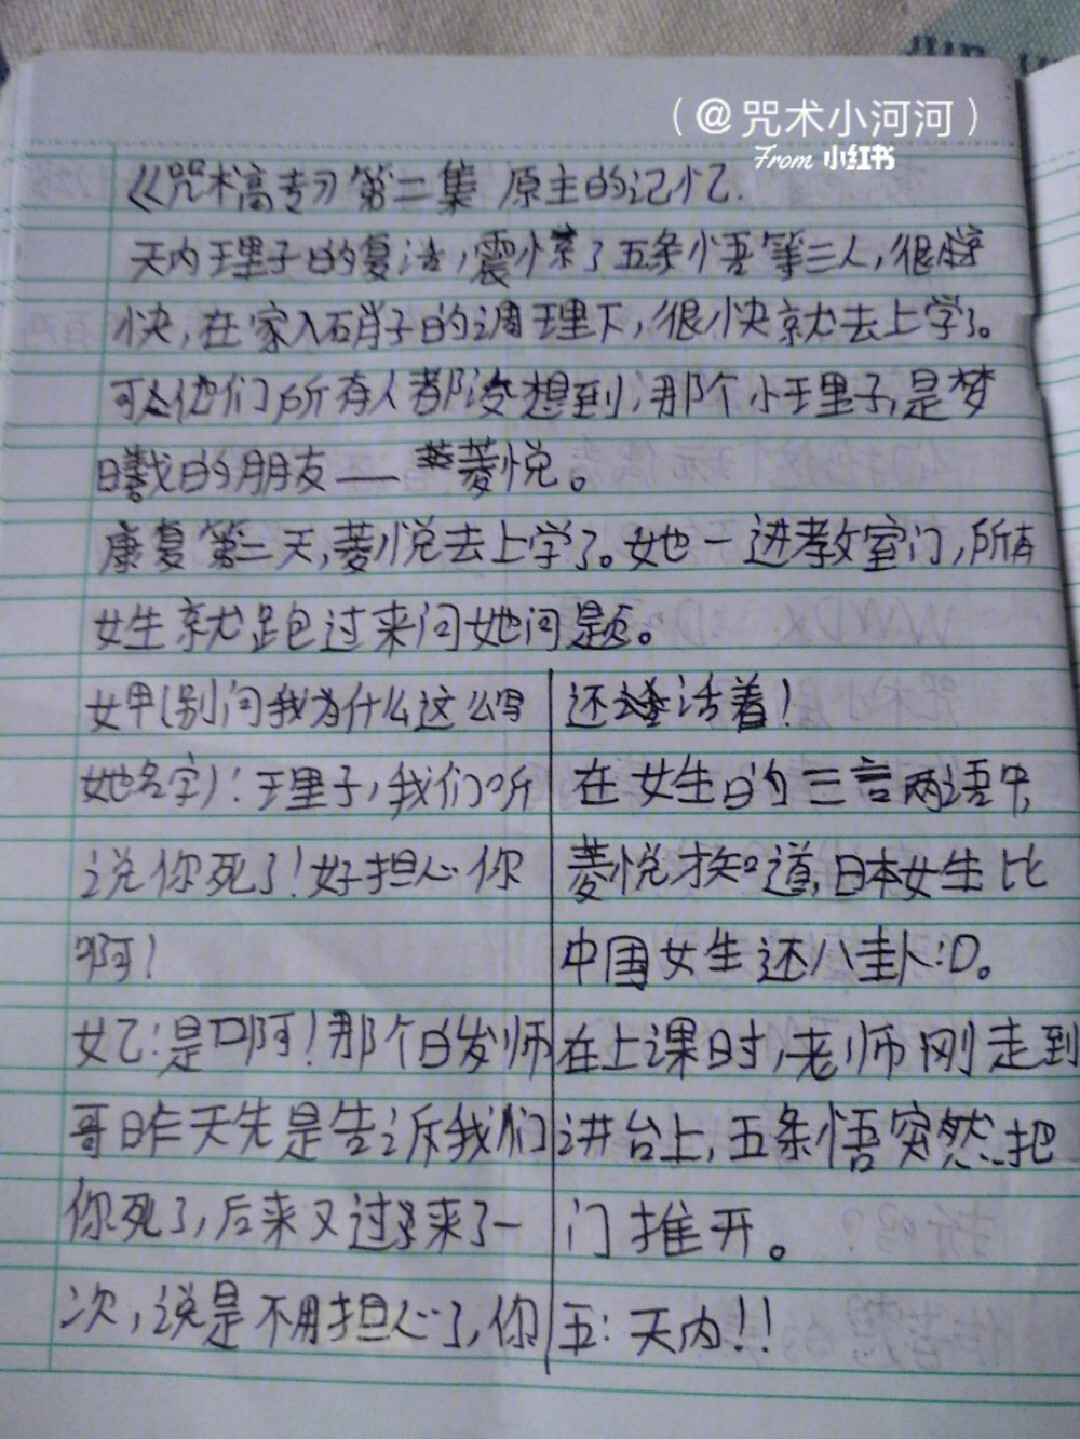 （@咒术小河河）
From 小红书
《咒术高专》第二集 原主的记忆.
天内理子的复活，震惊了五条悟等三人，很
快，在家入硝子的调理下，很快就去上学了。
可是他们所有人都没想到，那个小理子，是梦
曦的朋友——菱悦。
康复第二天，菱悦去上学了。她一进教室门，所有
女生就跑过来问她问题。
女甲(别问我为什么这么写
她名字)：理子，我们听
说你死了！好担心你
啊！
女乙：是啊！那个白发师
哥昨天先是告诉我们
你死了，后来又过来了一
次，说是不用担心了，你
还活着！
在女生的三言两语中，
菱悦才知道，日本女生比
中国女生还八卦:D。
在上课时，老师刚走到
讲台上，五条悟突然把
门推开。
五：天内！！